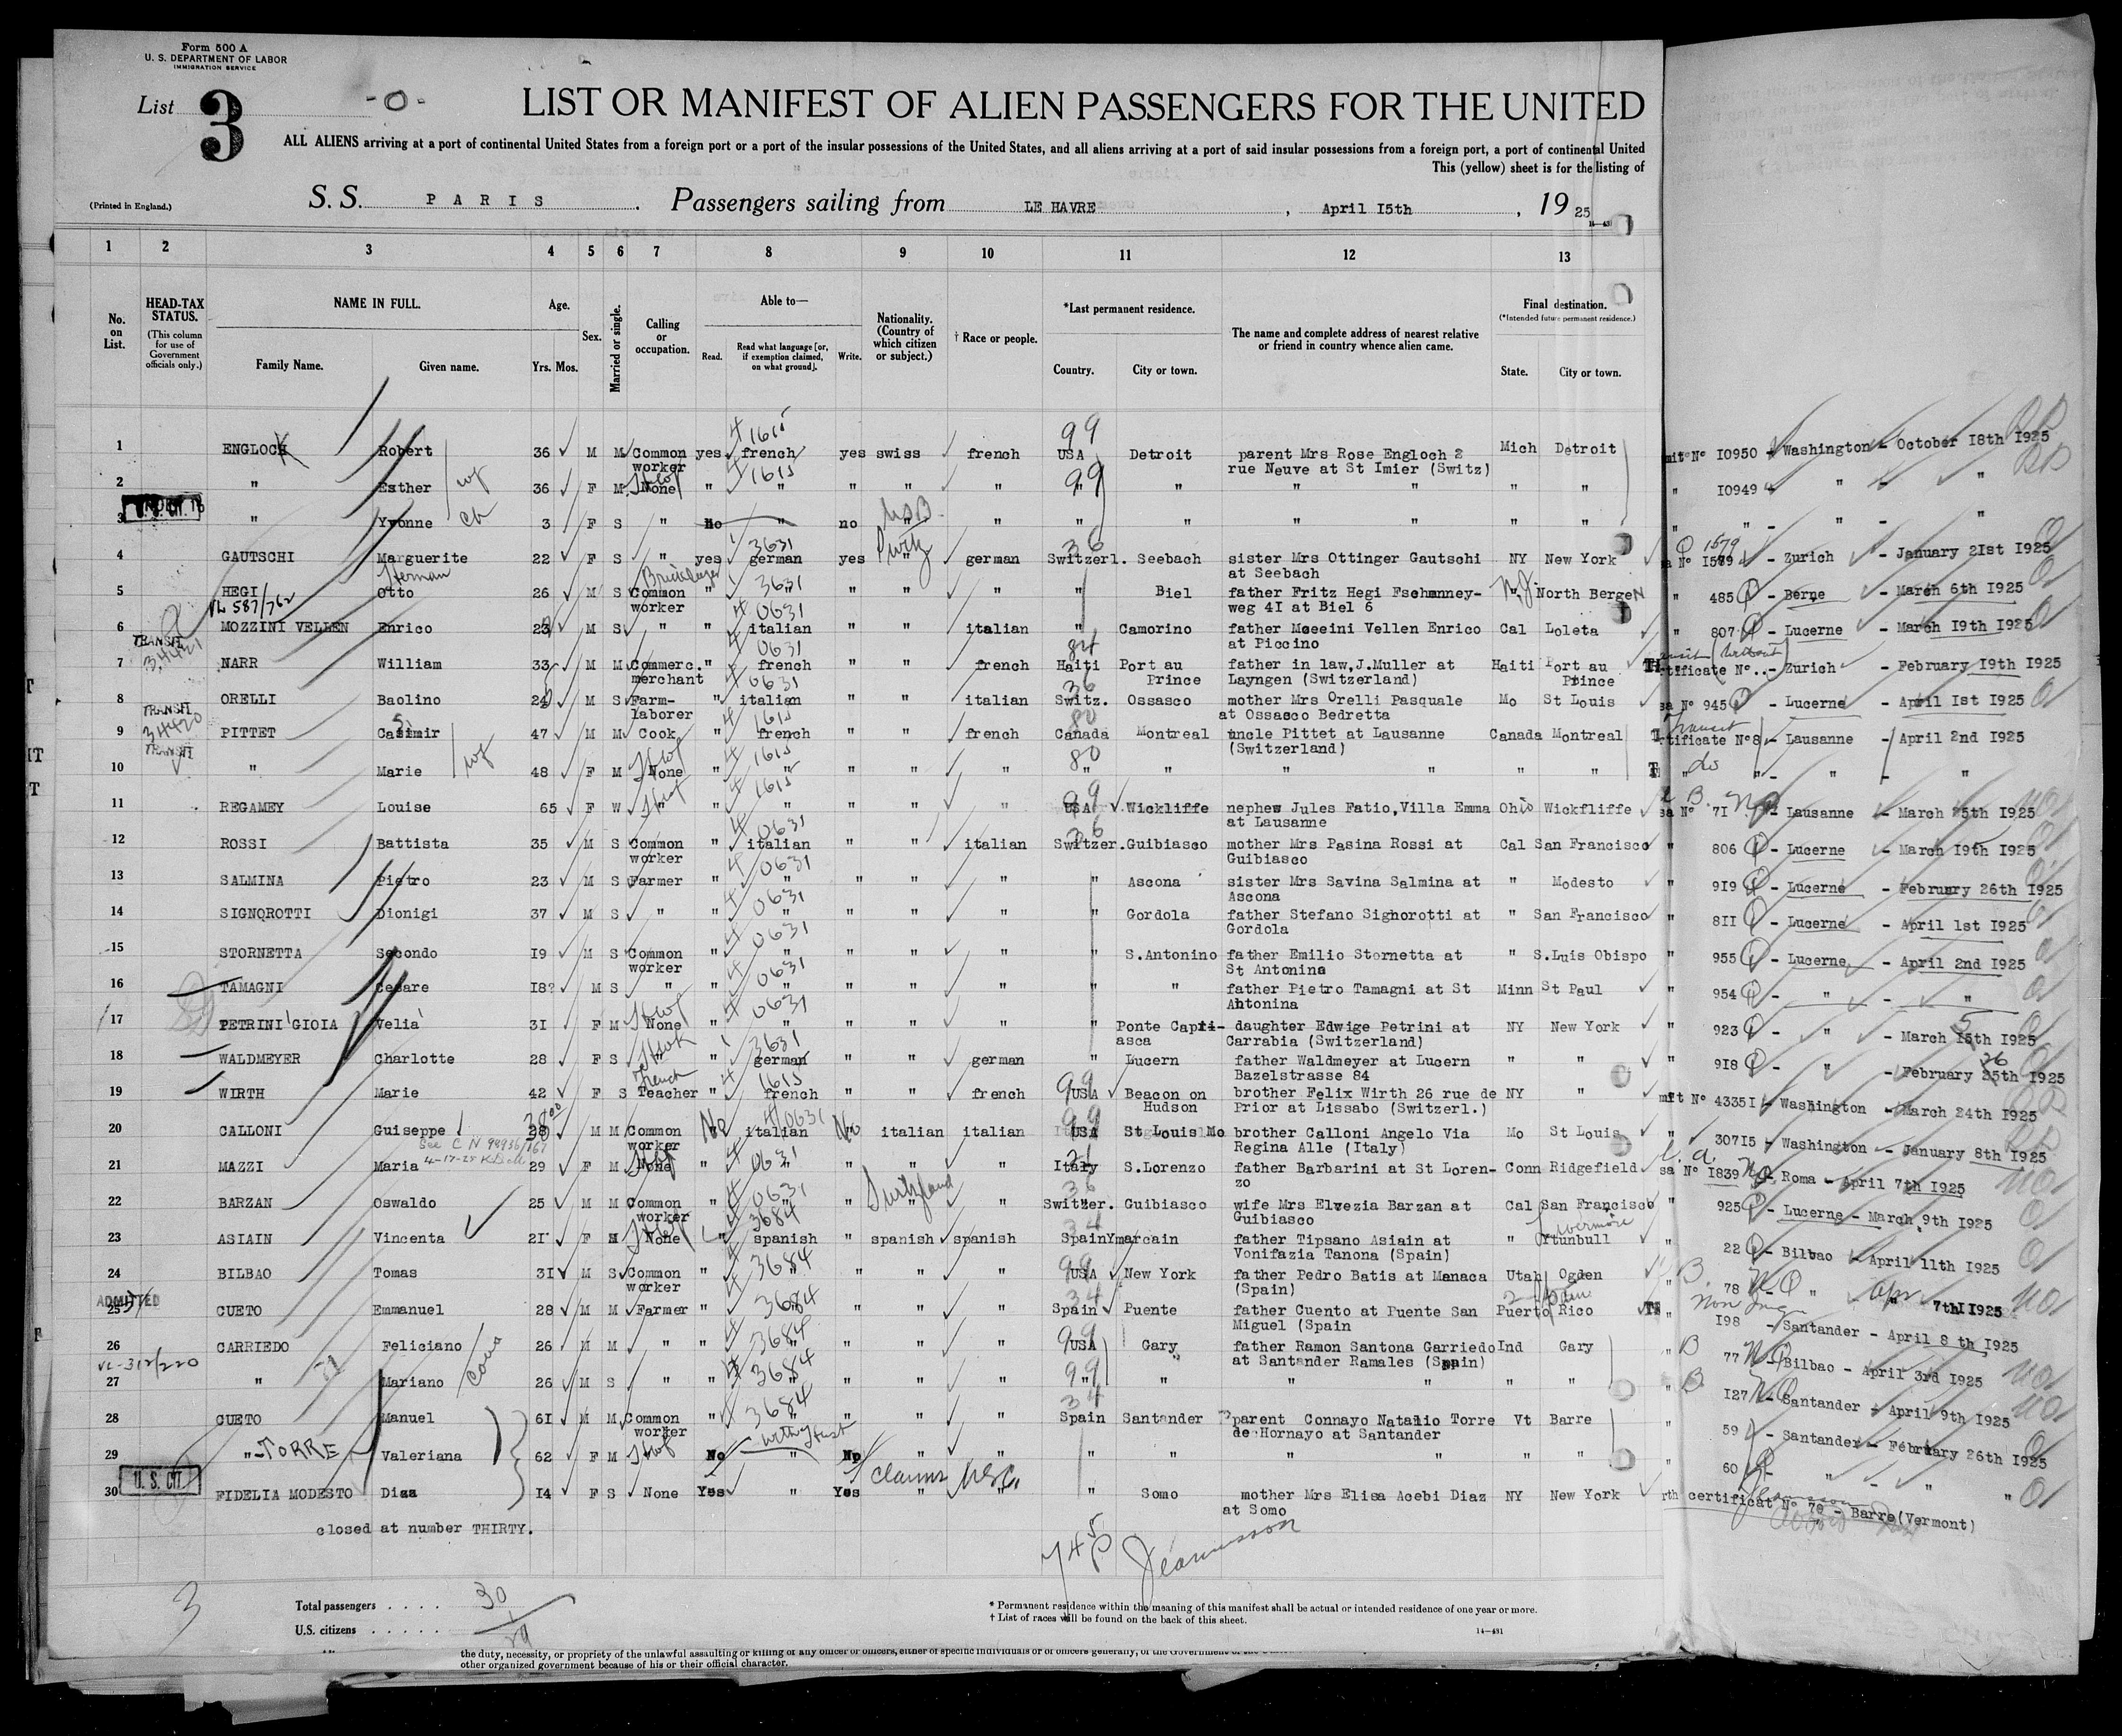 Form 500 A
U. S. DEPARTMENT OF LABOR
IMMIGRATION SERVICE
List 3 -0-
LIST OR MANIFEST OF ALIEN PASSENGERS FOR THE UNITED
ALL ALIENS arriving at a port of continental United States from a foreign port or a port of the insular possessions of the United States, and all aliens arriving at a port of said insular possessions from a foreign port, a port of continental United
This (yellow) sheet is for the listing of
(Printed in England.)
S. S. PARIS. Passengers sailing from LE HAVRE, April I5th, 19 25
1 2 3 4 5 6 7 8 9 10 11 12 13
No. on List.
HEAD-TAX STATUS.
(This column for use of Government officials only.)
NAME IN FULL.
Family Name. Given name.
Age.
Yrs. Mos.
Sex.
Married or single.
Calling or occupation.
Able to—
Read. Read what language [or, if exemption claimed, on what ground]. Write.
Nationality. (Country of which citizen or subject.)
† Race or people.
*Last permanent residence.
Country. City or town.
The name and complete address of nearest relative or friend in country whence alien came.
Final destination.
(*Intended future permanent residence.)
State. City or town.
1 ENGLOCH Robert 36 M M Common worker yes french 4 1615 yes swiss french 99 USA Detroit parent Mrs Rose Engloch 2 rue Neuve at St Imier (Switz) Mich Detroit mit Nº I0950 - Washington - October I8th I925
2 " Esther wf 36 F M None " " 4 1615 " " " 99 " " " " " " " I0949 " - "
3 " Yvonne ch 3 F S " No " no " USB " " " " " " " " " - " - "
4 GAUTSCHI Marguerite 22 F S " yes german 3631 yes " Switz german 36 Switzerl. Seebach sister Mrs Ottinger Gautschi at Seebach NY New York a Nº I589 1579 - Zurich - January 2Ist I925
5 HEGI Otto Herman 26 M S Common worker Bricklayer " " 3631 " " " " Biel father Fritz Hegi Fschnnney-weg 4I at Biel 6 " NJ North Bergen " 485 - Berne - March 6th I925
VL 587/762
6 MOZZINI VELLEN Enrico 23 M S " " italian 4 0631 " " italian " Camorino father Moeeini Vellen Enrico at Piccino Cal Loleta " 807 - Lucerne - March I9th I925
TRANSIT 34421
7 NARR William 33 M M Commerc. merchant " french 4 0631 " " french 84 Haiti Port au Prince father in law,J.Muller at Layngen (Switzerland) Haiti Port au Prince tificate Nº.. - Zurich - February I9th I925
8 ORELLI Baolino 24 M S Farm-laborer " italian 4 0631 " " italian 36 Switz. Ossasco mother Mrs Orelli Pasquale at Ossasco Bedretta Mo St Louis sa Nº 945 - Lucerne - April Ist I925
TRANSIT 34420
9 PITTET Casimir 47 M M Cook " french 4 1615 " " french 80 Canada Montreal uncle Pittet at Lausanne (Switzerland) Canada Montreal Transit rtificate Nº8 - Lausanne - April 2nd I925
TRANSIT
10 " Marie wf 48 F M None " " 4 1615 " " " 80 " " " " " " " do " - " - "
11 REGAMEY Louise 65 F W " " " 4 1615 " " " 99 USA Wickliffe nephew Jules Fatio,Villa Emma at Lausanne Ohio Wickfliffe sa Nº 7I - Lausanne - March 25th I925
12 ROSSI Battista 35 M S Common worker " italian 4 0631 " " italian 36 Switzer. Guibiasco mother Mrs Pasina Rossi at Guibiasco Cal San Francisco " 806 - Lucerne - March I9th I925
13 SALMINA Pietro 23 M S Farmer " " 4 0631 " " " " Ascona sister Mrs Savina Salmina at Ascona " Modesto " 9I9 - Lucerne - February 26th I925
14 SIGNOROTTI Dionigi 37 M S " " " 4 0631 " " " " Gordola father Stefano Sighorotti at Gordola " San Francisco " 8II - Lucerne - April 1st I925
15 STORNETTA Secondo I9 M S Common worker " " 4 0631 " " " " S.Antonino father Emilio Stornetta at St Antonina " S.Luis Obispo " 955 - Lucerne - April 2nd I925
16 TAMAGNI Cesare I8 M S " " " 4 0631 " " " " " father Pietro Tamagni at St Antonina Minn St Paul " 954 - " - "
17 PETRINI GIOIA Velia 3I F M None " " 4 0631 " " " " Ponte Capri-asca daughter Edwige Petrini at Carrabia (Switzerland) NY New York " 923 - " - March I5th I925
18 WALDMEYER Charlotte 28 F S " " german 3631 " " german " Lucern father Waldmeyer at Lucern Bazelstrasse 84 " " " 9I8 - " - February 25th I925
19 WIRTH Marie 42 F S French Teacher " french 4 1615 " " french 99 USA Beacon on Hudson brother Felix Wirth 26 rue de Prior at Lissabo (Switzerl.) NY " mit Nº 4335I - Washington - March 24th I925
20 CALLONI Guiseppe 28 M M Common worker No italian 4 0631 No italian italian 99 USA St Louis Mo brother Calloni Angelo Via Regina Alle (Italy) Mo St Louis " 307I5 - Washington - January 8th I925
21 MAZZI Maria 29 F M None " " 4 0631 " " " Italy S.Lorenzo father Barbarini at St Loren-zo Conn Ridgefield sa Nº I839 - Roma - April 7th I925
22 BARZAN Oswaldo 25 M M Common worker " " 4 0631 " " Switzerland " 36 Switzer. Guibiasco wife Mrs Elvezia Barzan at Guibiasco Cal San Francisco " 925 - Lucerne - March 9th I925
23 ASIAIN Vincenta 2I F M None " spanish 3684 " spanish spanish 34 Spain Ymarcain father Tipsano Asiain at Vonifazia Tanona (Spain) " Ytunbull Livermore " 22 - Bilbao - April 11th I925
24 BILBAO Tomas 3I M S Common worker " " 4 3684 " " " 99 USA New York father Pedro Batis at Manaca (Spain) Utah Ogden " 78 " - Apr 7th I925
ADMITTED
25 CUETO Emmanuel 28 M M Farmer " " 3684 " " " 34 Spain Puente father Cuento at Puente San Miguel (Spain Puerto Rico Non Img I98 - Santander - April 8 th I925
26 CARRIEDO Feliciano 26 M M " " " 3684 " " " 99 USA Gary father Ramon Santona Garriedo at Santander Ramales (Spain) Ind Gary " 77 - Bilbao - April 3rd I925
VL-312/220
27 " Mariano 26 M S " " " 3684 " " " 99 " " " " " " " I27 - Santander - April 9th I925
28 CUETO Manuel 6I M M Common worker " " 3684 " " " 34 Spain Santander parent Connayo Natalio Torre de Hornayo at Santander Vt Barre " 59 - Santander - February 26th I925
29 "-TORRE Valeriana 62 F M No " No " " " " " " " " 60 - " - "
U. S. CIT.
30 FIDELIA MODESTO Diaa I4 F S None Yes " Yes " claims USC. " " Somo mother Mrs Elisa Acebi Diaz at Somo NY New York rth certificat Nº 78 - Barre(Vermont)
closed at number THIRTY.
3
Total passengers . . . . 30
U.S. citizens . . . . .
* Permanent residence within the meaning of this manifest shall be actual or intended residence of one year or more.
† List of races will be found on the back of this sheet.
14—431
the duty, necessity, or propriety of the unlawful assaulting or killing of any officer or officers, either of specific individuals or of officers generally, of the Government
other organized government because of his or their official character.